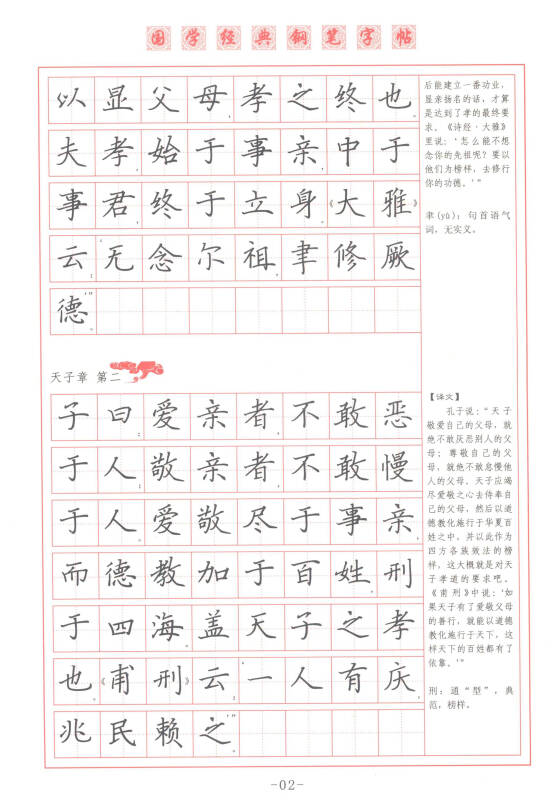 国学经典钢笔字帖
以显父母，孝之终也。
夫孝始于事亲，中于
事君，终于立身。《大雅》
云：‘无念尔祖，聿修厥
德’”。
后能建立一番功业，
显亲扬名的话，才算
是达到了孝的最终要
求。《诗经·大雅》
里说：‘怎么能不想
念你的先祖呢？要以
他们为榜样，去修行
你的功德。’”
聿(yù)：句首语气
词，无实义。
天子章 第二
子曰：爱亲者，不敢恶
于人；敬亲者，不敢慢
于人。爱敬尽于事亲，
而德教加于百姓，刑
于四海。盖天子之孝
也。《甫刑》云：‘一人有庆，
兆民赖之’”。
【译文】
孔子说：“天子
敬爱自己的父母，就
绝不敢厌恶别人的父
母；尊敬自己的父
母，就绝不敢怠慢他
人的父母。天子应竭
尽爱敬之心去侍奉自
己的父母，然后以道
德教化施行于华夏百
姓之中，并以此作为
四方各族效法的榜
样，这大概就是对天
子孝道的要求吧。
《甫刑》中说：‘如
果天子有了爱敬父母
的善行，就能以道德
教化施行于天下，这
样天下的百姓都有了
依靠。’”
刑：通“型”，典
范，榜样。
-02-